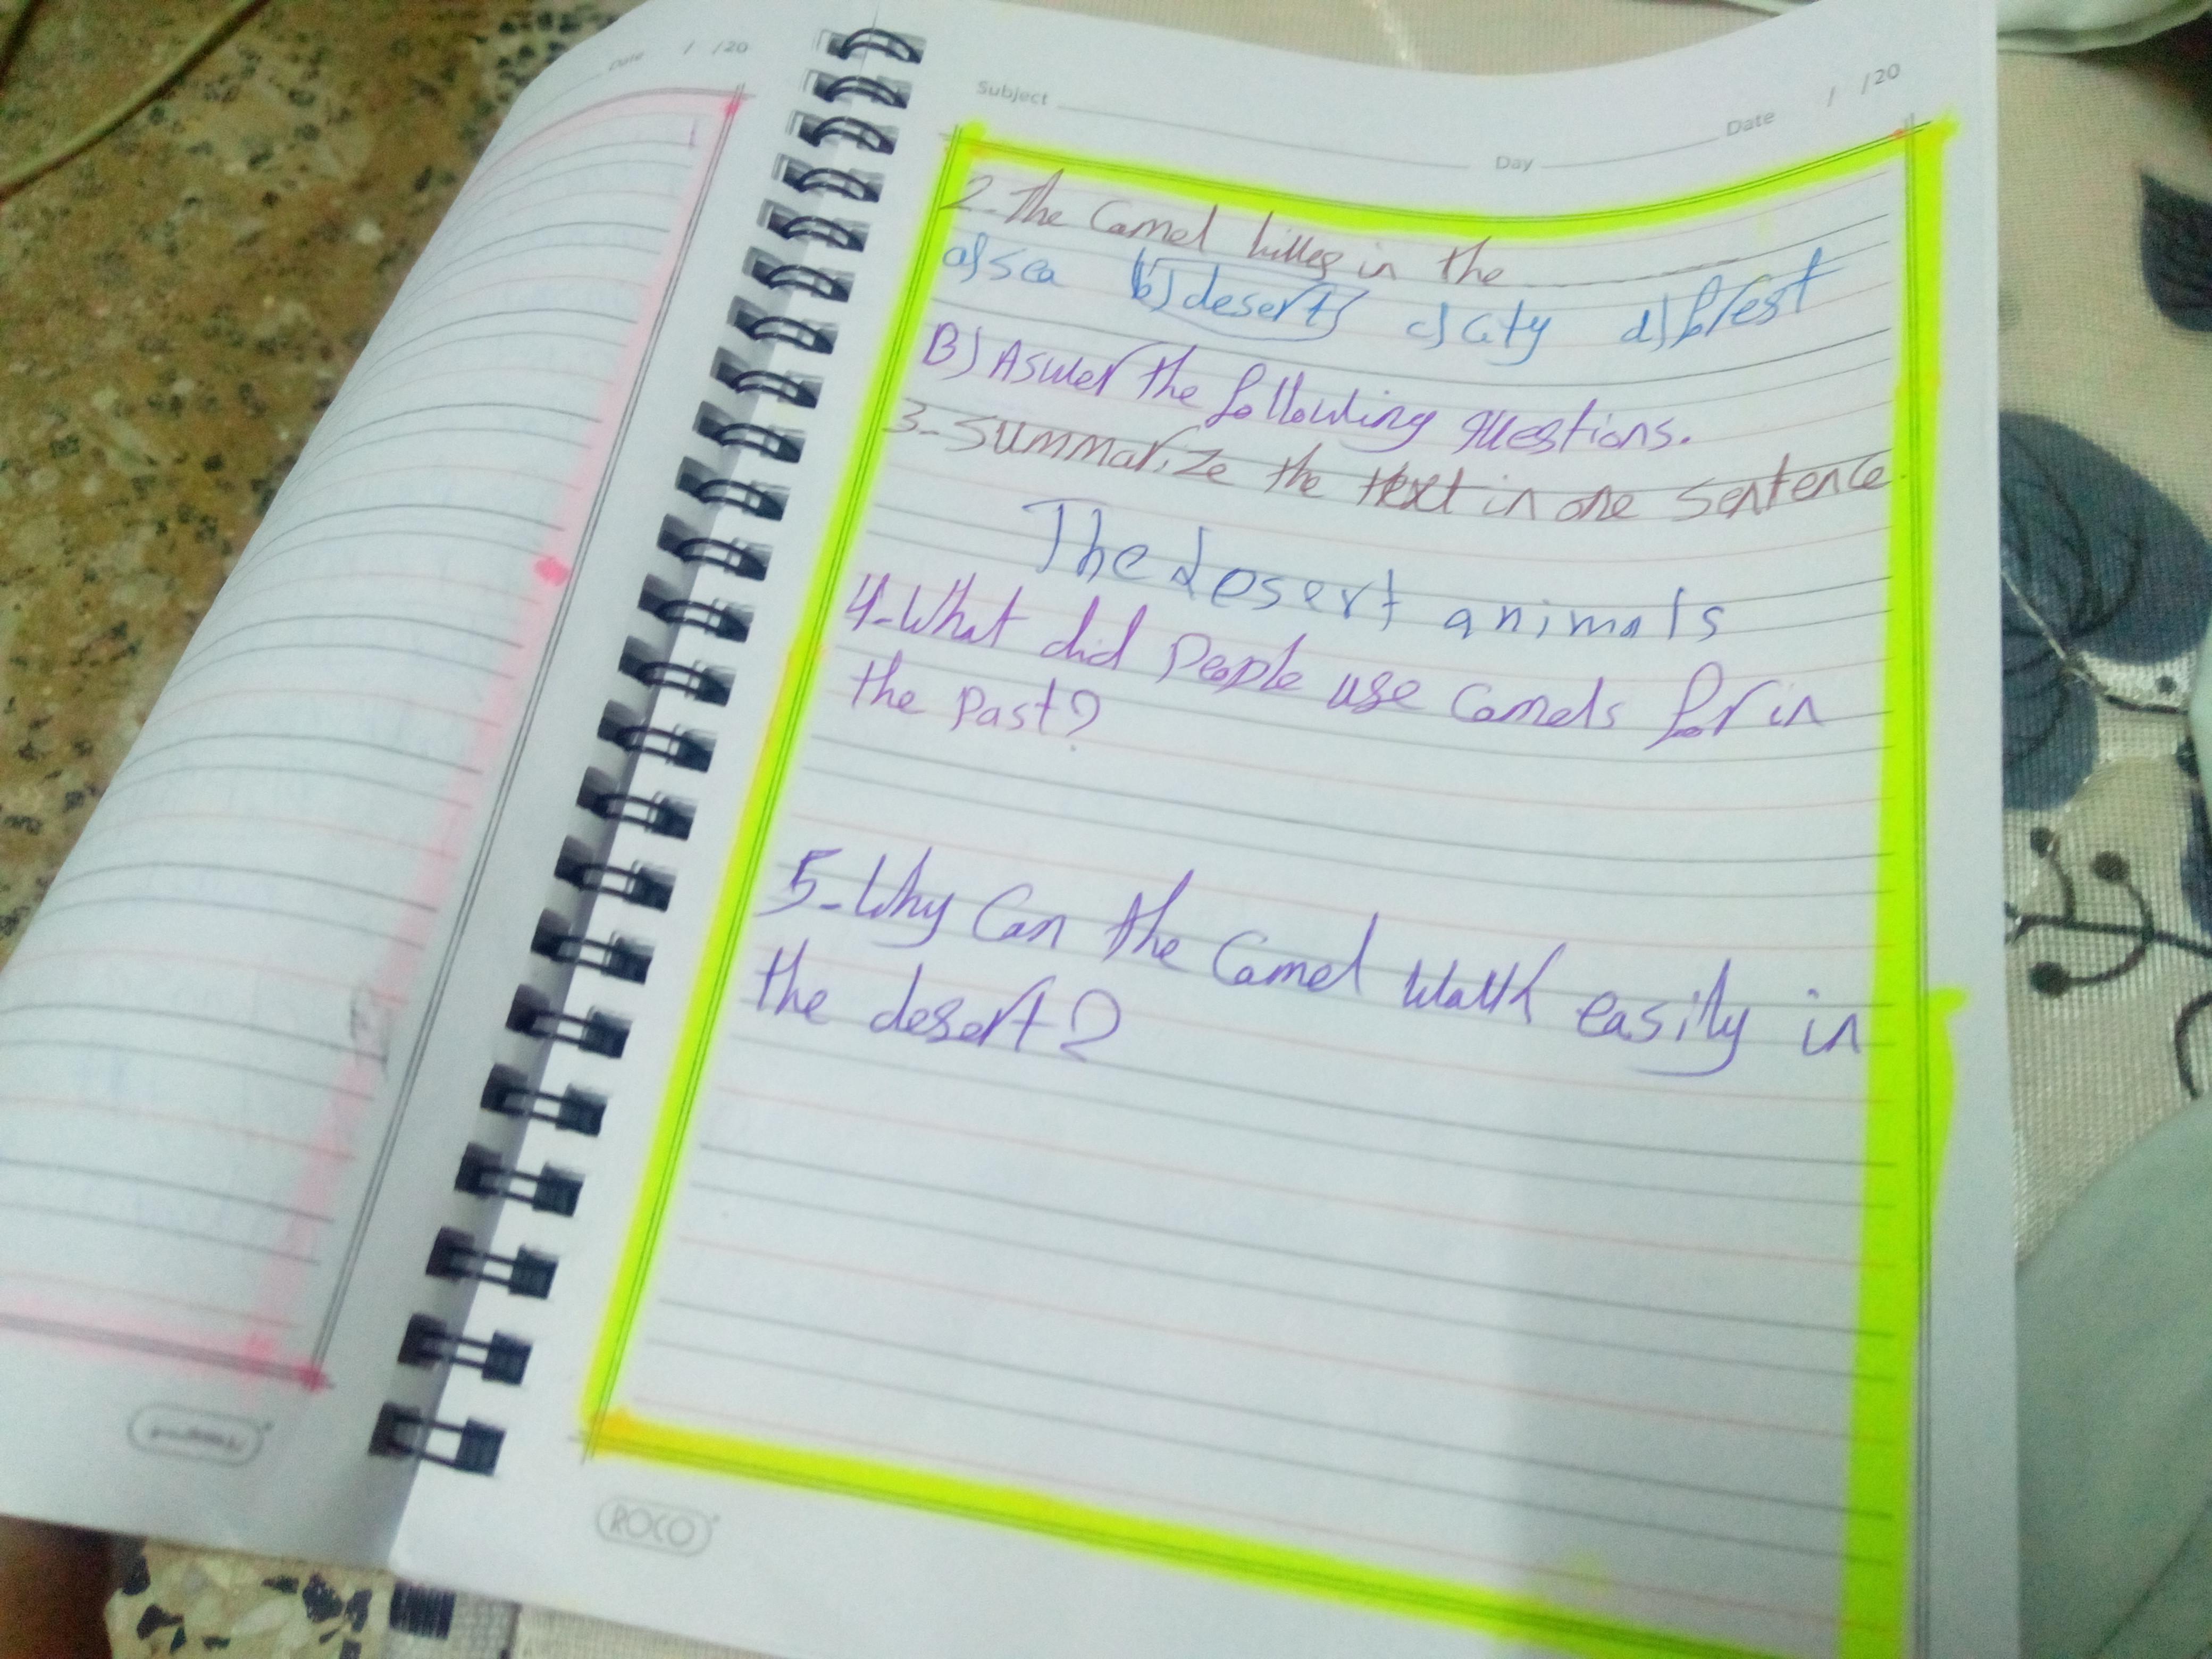 Date / /20
Subject Day Date / /20
2-The Camel lives in the
a) sea b) desert c) city d) forest
B) Aswer the following questions.
3-Summarize the text in one sentence.
The desert animals
4-What did People use Camels for in
the Past?
5-Why Can the Camel walk easily in
the desert?
ROCO